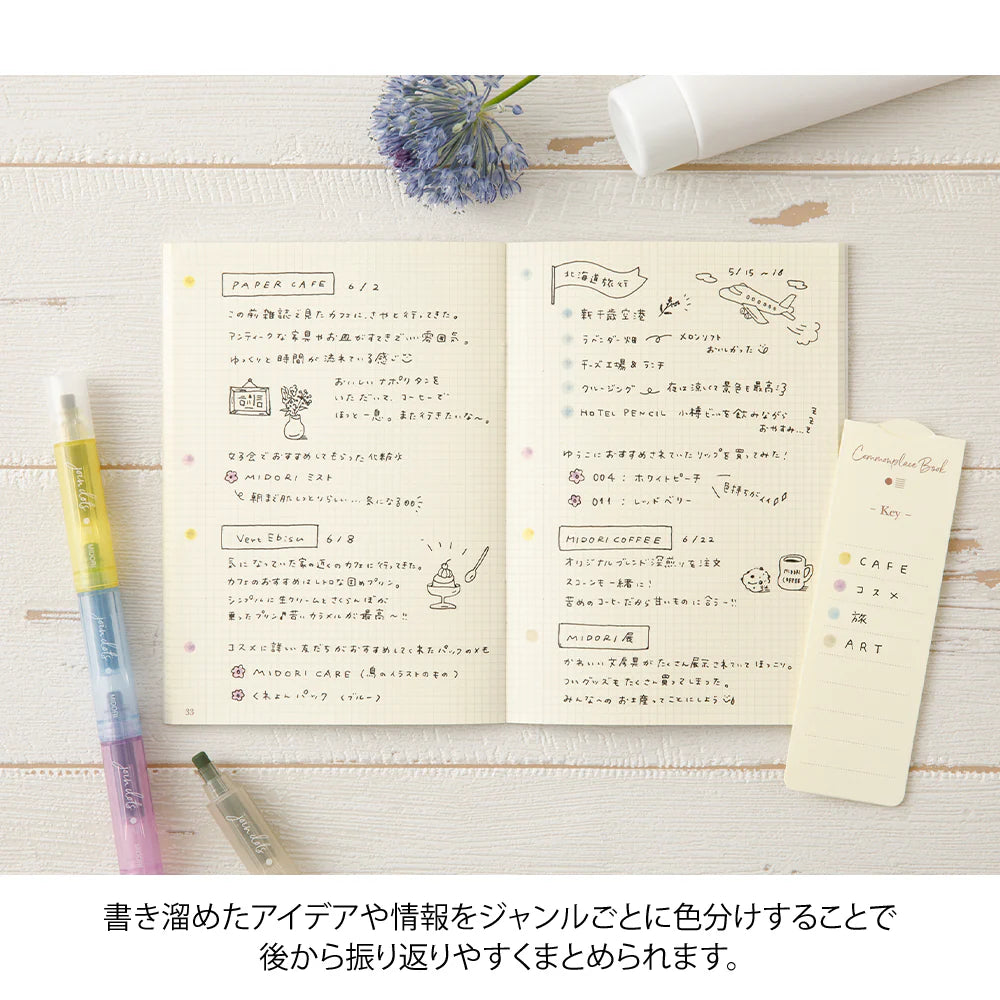 PAPER CAFE 6/2
この前雑誌で見たカフェに、さやと行ってきた。
アンティークな家具やお皿がすてきでいい雰囲気。
ゆっくりと時間が流れている感じ
おいしいナポリタンを
いただいて、コーヒーで
ほっと一息。また行きたいな〜。
女子会でおすすめしてもらった化粧水
MIDORI ミスト
朝まで肌しっとりらしい…気になる
Vert Ebisu 6/8
気になっていた家の近くのカフェに行ってきた。
カフェのおすすめはレトロな固めプリン。
シンプルに生クリームとさくらんぼが
乗ったプリン♪苦いカラメルが最高〜!!
コスメに詳しい友だちがおすすめしてくれたパックのメモ
MIDORI CARE (鳥のイラストのもの)
くれよんパック (ブルー)
33
北海道旅行
5/15〜18
新千歳空港
ラベンダー畑 メロンソフト
おいしかった
チーズ工場 & ランチ
クルージング 夜は涼しくて景色も最高
HOTEL PENCIL 小樽ビールを飲みながら
おやすみ…
ゆうこにおすすめされていたリップを買ってみた!
004:ホワイトピーチ
011:レッドベリー
色持ちがイイ
MIDORI COFFEE 6/22
オリジナルブレンド深煎りを注文
スコーンも一緒に!
苦めのコーヒーだから甘いものに合う〜!!
MIDORI COFFEE
MIDORI展
かわいい文房具がたくさん展示されていてほっこり。
ついグッズもたくさん買ってしまった。
みんなへのお土産ってことにしよう
Commonplace Book
- Key -
CAFE
コスメ
旅
ART
join dots
MIDORI
join dots
MIDORI
join dots
MIDORI
join dots
書き溜めたアイデアや情報をジャンルごとに色分けすることで
後から振り返りやすくまとめられます。